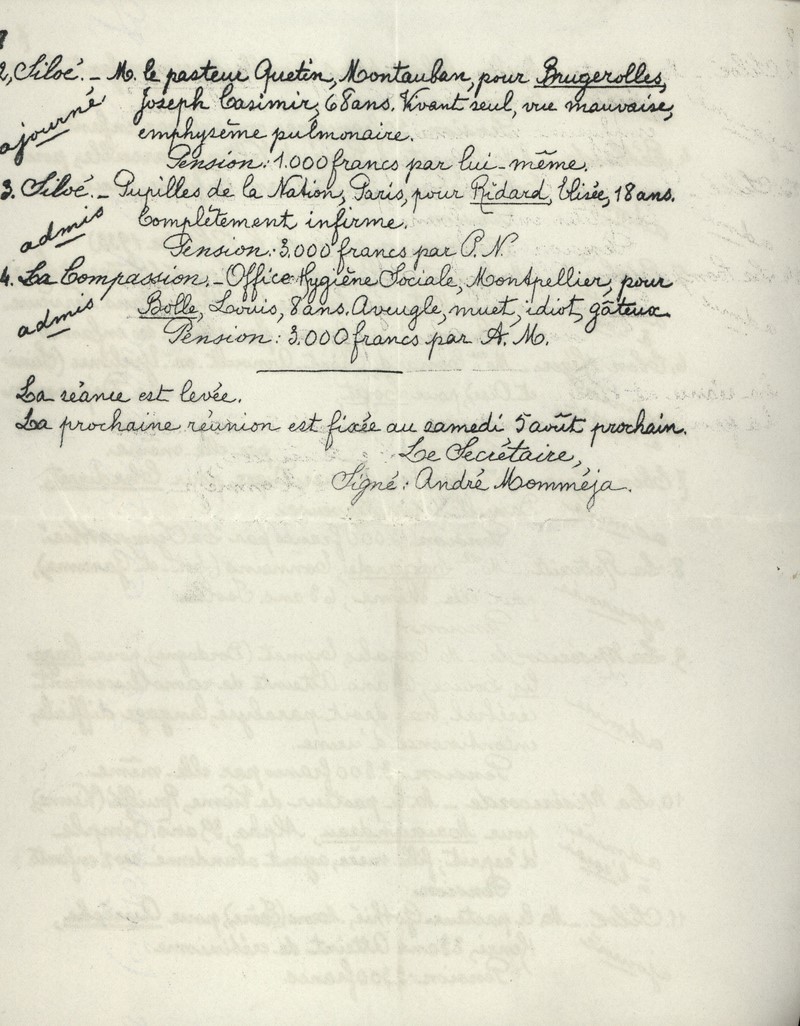 2, Siloé. - M. le pasteur Quetin, Montauban, pour Brugerolles,
ajourné
Joseph Casimir, 68 ans. Vivant seul, vue mauvaise,
emphysème pulmonaire.
Pension: 1.000 francs par lui-même.
3. Siloé. - Pupilles de la Nation, Paris, pour Ridard, Elisée, 18 ans.
admis
Complètement infirme.
Pension: 3.000 francs par P. N.
4. La Compassion. - Office Hygiène Sociale, Montpellier, pour
admis
Bolle, Louis, 8 ans. Aveugle, muet, idiot, gâteux.
Pension: 3.000 francs par A. M.
La séance est levée.
La prochaine réunion est fixée au samedi 5 août prochain.
Le Secrétaire,
Signé: André Momméja.